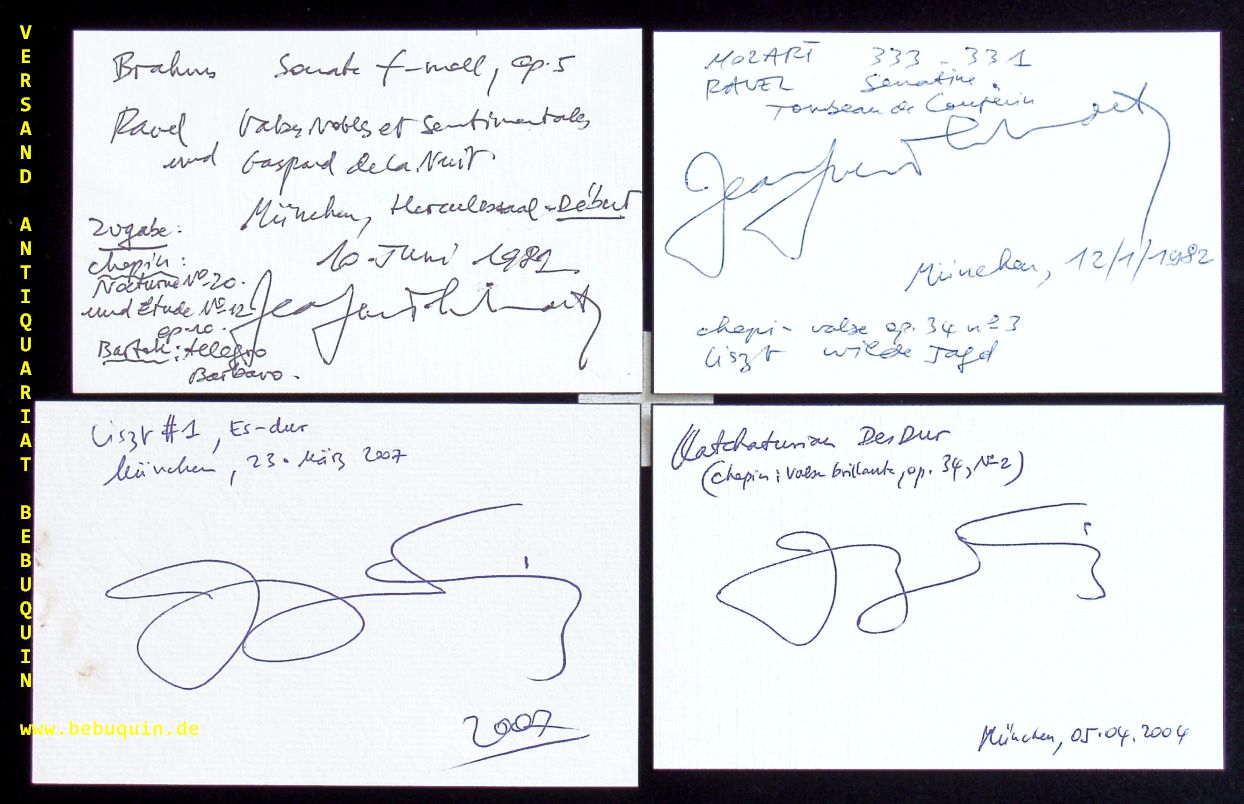 VERSAND ANTIQUARIAT BEBUQUIN
www.bebuquin.de
Brahms Sonate f-moll, op. 5
Ravel Valses Nobles et Sentimentales
und Gaspard de la Nuit
München, Herculessaal - Début
10. Juni 1981
Zugabe:
Chopin:
Nocturne No. 20.
und Etude No. 12
op. 10.
Bartok: Allegro
Barbaro.
MOZART 333 - 331
RAVEL Sonatine
Tombeau de Couperin
München, 12/1/1982
Chopin - valse op. 34 no 3
Liszt wilde Jagd
Liszt #1, Es-dur
München, 23. März 2007
2007
Katchaturian Des Dur
(Chopin: Valse brillante, op. 34, No. 2)
München, 05.04.2004